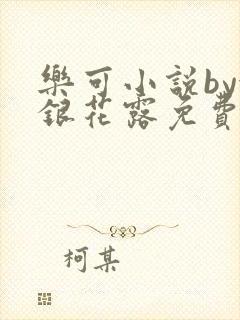 樂可小說by
銀花露免費
柯某